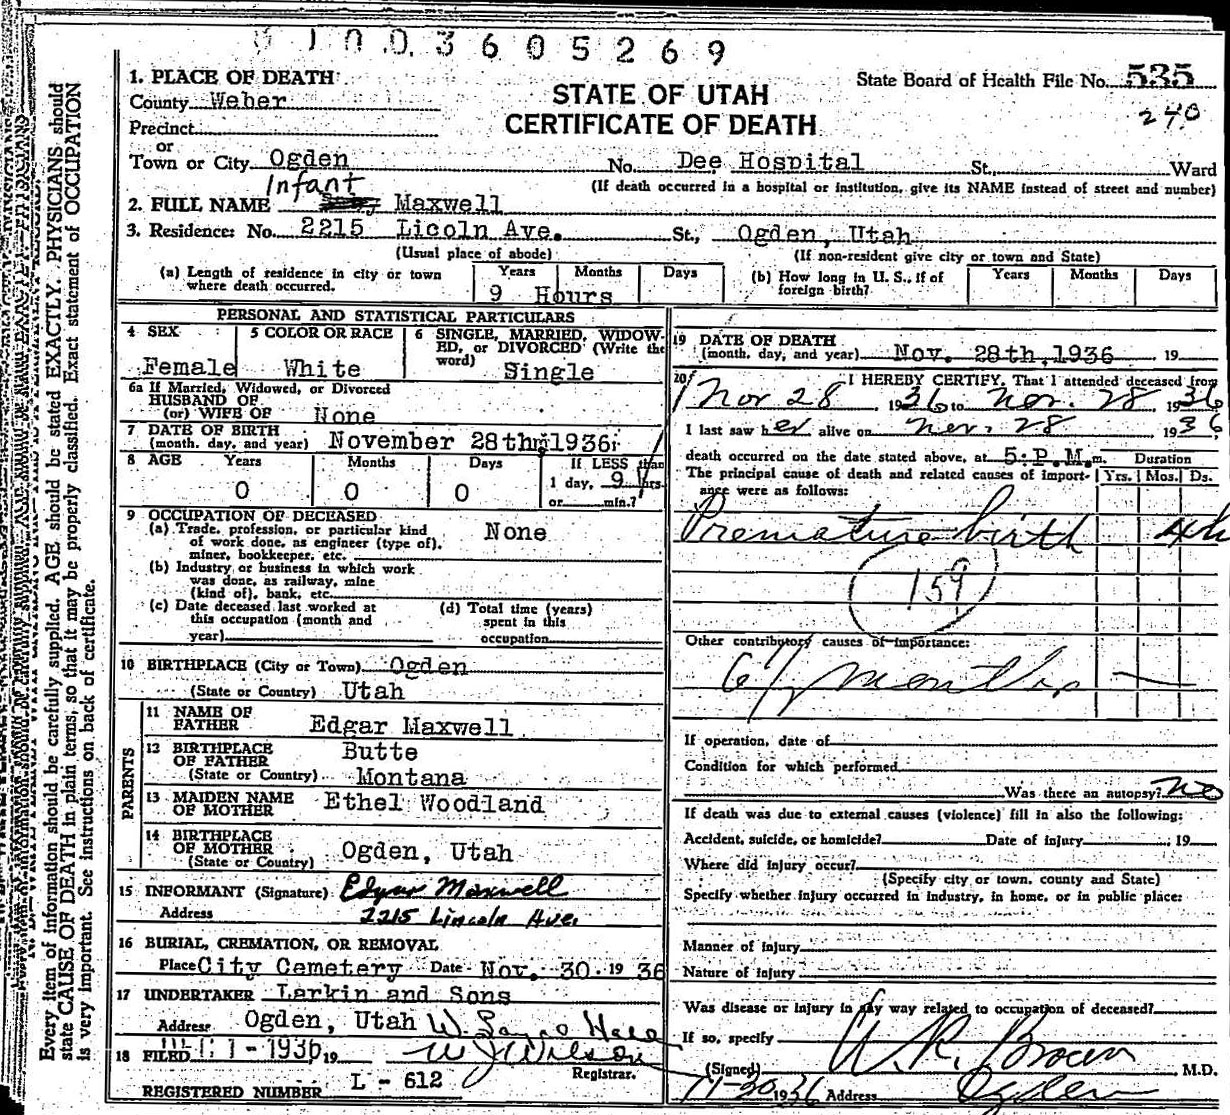 0 1 0 0 3 6 0 5 2 6 9
State Board of Health File No. 535
240
STATE OF UTAH
CERTIFICATE OF DEATH
1. PLACE OF DEATH
County Weber
Precinct
or
Town or City Ogden No. Dee Hospital St. Ward
(If death occurred in a hospital or institution, give its NAME instead of street and number)
Infant
2. FULL NAME Maxwell
3. Residence: No. 2215 Licoln Ave. St., Ogden, Utah
(Usual place of abode) (If non-resident give city or town and State)
(a) Length of residence in city or town where death occurred. Years Months Days
9 Hours
(b) How long in U. S., if of foreign birth? Years Months Days
PERSONAL AND STATISTICAL PARTICULARS
4 SEX 5 COLOR OR RACE 6 SINGLE, MARRIED, WIDOWED, or DIVORCED (Write the word)
Female White Single
6a If Married, Widowed, or Divorced
HUSBAND OF
(or) WIFE OF None
7 DATE OF BIRTH
(month, day, and year) November 28th, 1936
8 AGE Years Months Days If LESS than
0 0 0 1 day, 9 hrs.
or min.?
9 OCCUPATION OF DECEASED
(a) Trade, profession, or particular kind None
of work done, as engineer (type of),
miner, bookkeeper, etc.
(b) Industry or business in which work
was done, as railway, mine
(kind of), bank, etc.
(c) Date deceased last worked at (d) Total time (years)
this occupation (month and spent in this
year) occupation
10 BIRTHPLACE (City or Town) Ogden
(State or Country) Utah
PARENTS
11 NAME OF
FATHER Edgar Maxwell
12 BIRTHPLACE Butte
OF FATHER
(State or Country) Montana
13 MAIDEN NAME Ethel Woodland
OF MOTHER
14 BIRTHPLACE
OF MOTHER Ogden, Utah
(State or Country)
15 INFORMANT (Signature) Edgar Maxwell
Address 2215 Lincoln Ave.
16 BURIAL, CREMATION, OR REMOVAL
Place City Cemetery Date Nov. 30 19 36
17 UNDERTAKER Larkin and Sons
Address Ogden, Utah
18 FILED DEC 1 - 1936 19 W J Wilson
Registrar.
REGISTERED NUMBER L - 612
19 DATE OF DEATH
(month, day, and year) Nov. 28th, 1936 19
20 I HEREBY CERTIFY, That I attended deceased from
Nov 28 1936 to Nov. 28 1936
I last saw her alive on Nov. 28 1936
death occurred on the date stated above, at 5: P.M. m. Duration
The principal cause of death and related causes of import- Yrs. Mos. Ds.
ance were as follows:
Premature birth
159
Other contributory causes of importance:
months
If operation, date of
Condition for which performed
Was there an autopsy? No
If death was due to external causes (violence) fill in also the following:
Accident, suicide, or homicide? Date of injury 19
Where did injury occur?
(Specify city or town, county and State)
Specify whether injury occurred in industry, in home, or in public place:
Manner of injury
Nature of injury
Was disease or injury in any way related to occupation of deceased?
If so, specify
(Signed) W. R. Brown M.D.
11-30 1936 Address Ogden
Every item of information should be carefully supplied. AGE should be stated EXACTLY. PHYSICIANS should
state CAUSE OF DEATH in plain terms, so that it may be properly classified. Exact statement of OCCUPATION
is very important. See instructions on back of certificate.